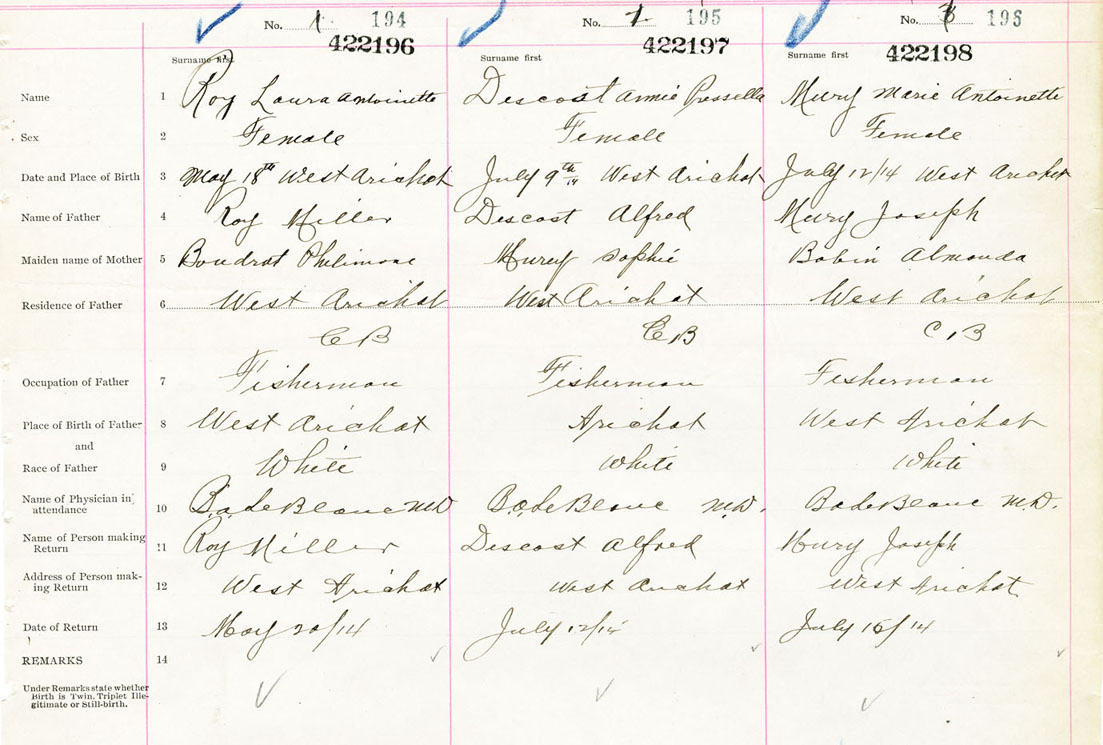 No. 1 194 No. 2 195 No. 3 196
422196 422197 422198
Surname first Surname first Surname first
Name 1 Roy Laura Antoinette Descost Annie Pressella Mury Marie Antoinette
Sex 2 Female Female Female
Date and Place of Birth 3 May 18th West Arichat July 9th/14 West Arichat July 12/14 West Arichat
Name of Father 4 Roy Miller Descost Alfred Mury Joseph
Maiden name of Mother 5 Boudrot Philimone Murey Sophie Bobin Almonda
Residence of Father 6 West Arichat West Arichat West Arichat
C B C B C, B
Occupation of Father 7 Fisherman Fisherman Fisherman
Place of Birth of Father 8 West Arichat Arichat West Arichat
and
Race of Father 9 White White White
Name of Physician in attendance 10 MD M.D. M.D.
Name of Person making Return 11 Roy Miller Descost Alfred Mury Joseph
Address of Person making Return 12 West Arichat West Arichat West Arichat
Date of Return 13 May 20/14 July 12/14 July 15/14
REMARKS 14
Under Remarks state whether
Birth is Twin, Triplet Ille-
gitimate or Still-birth.